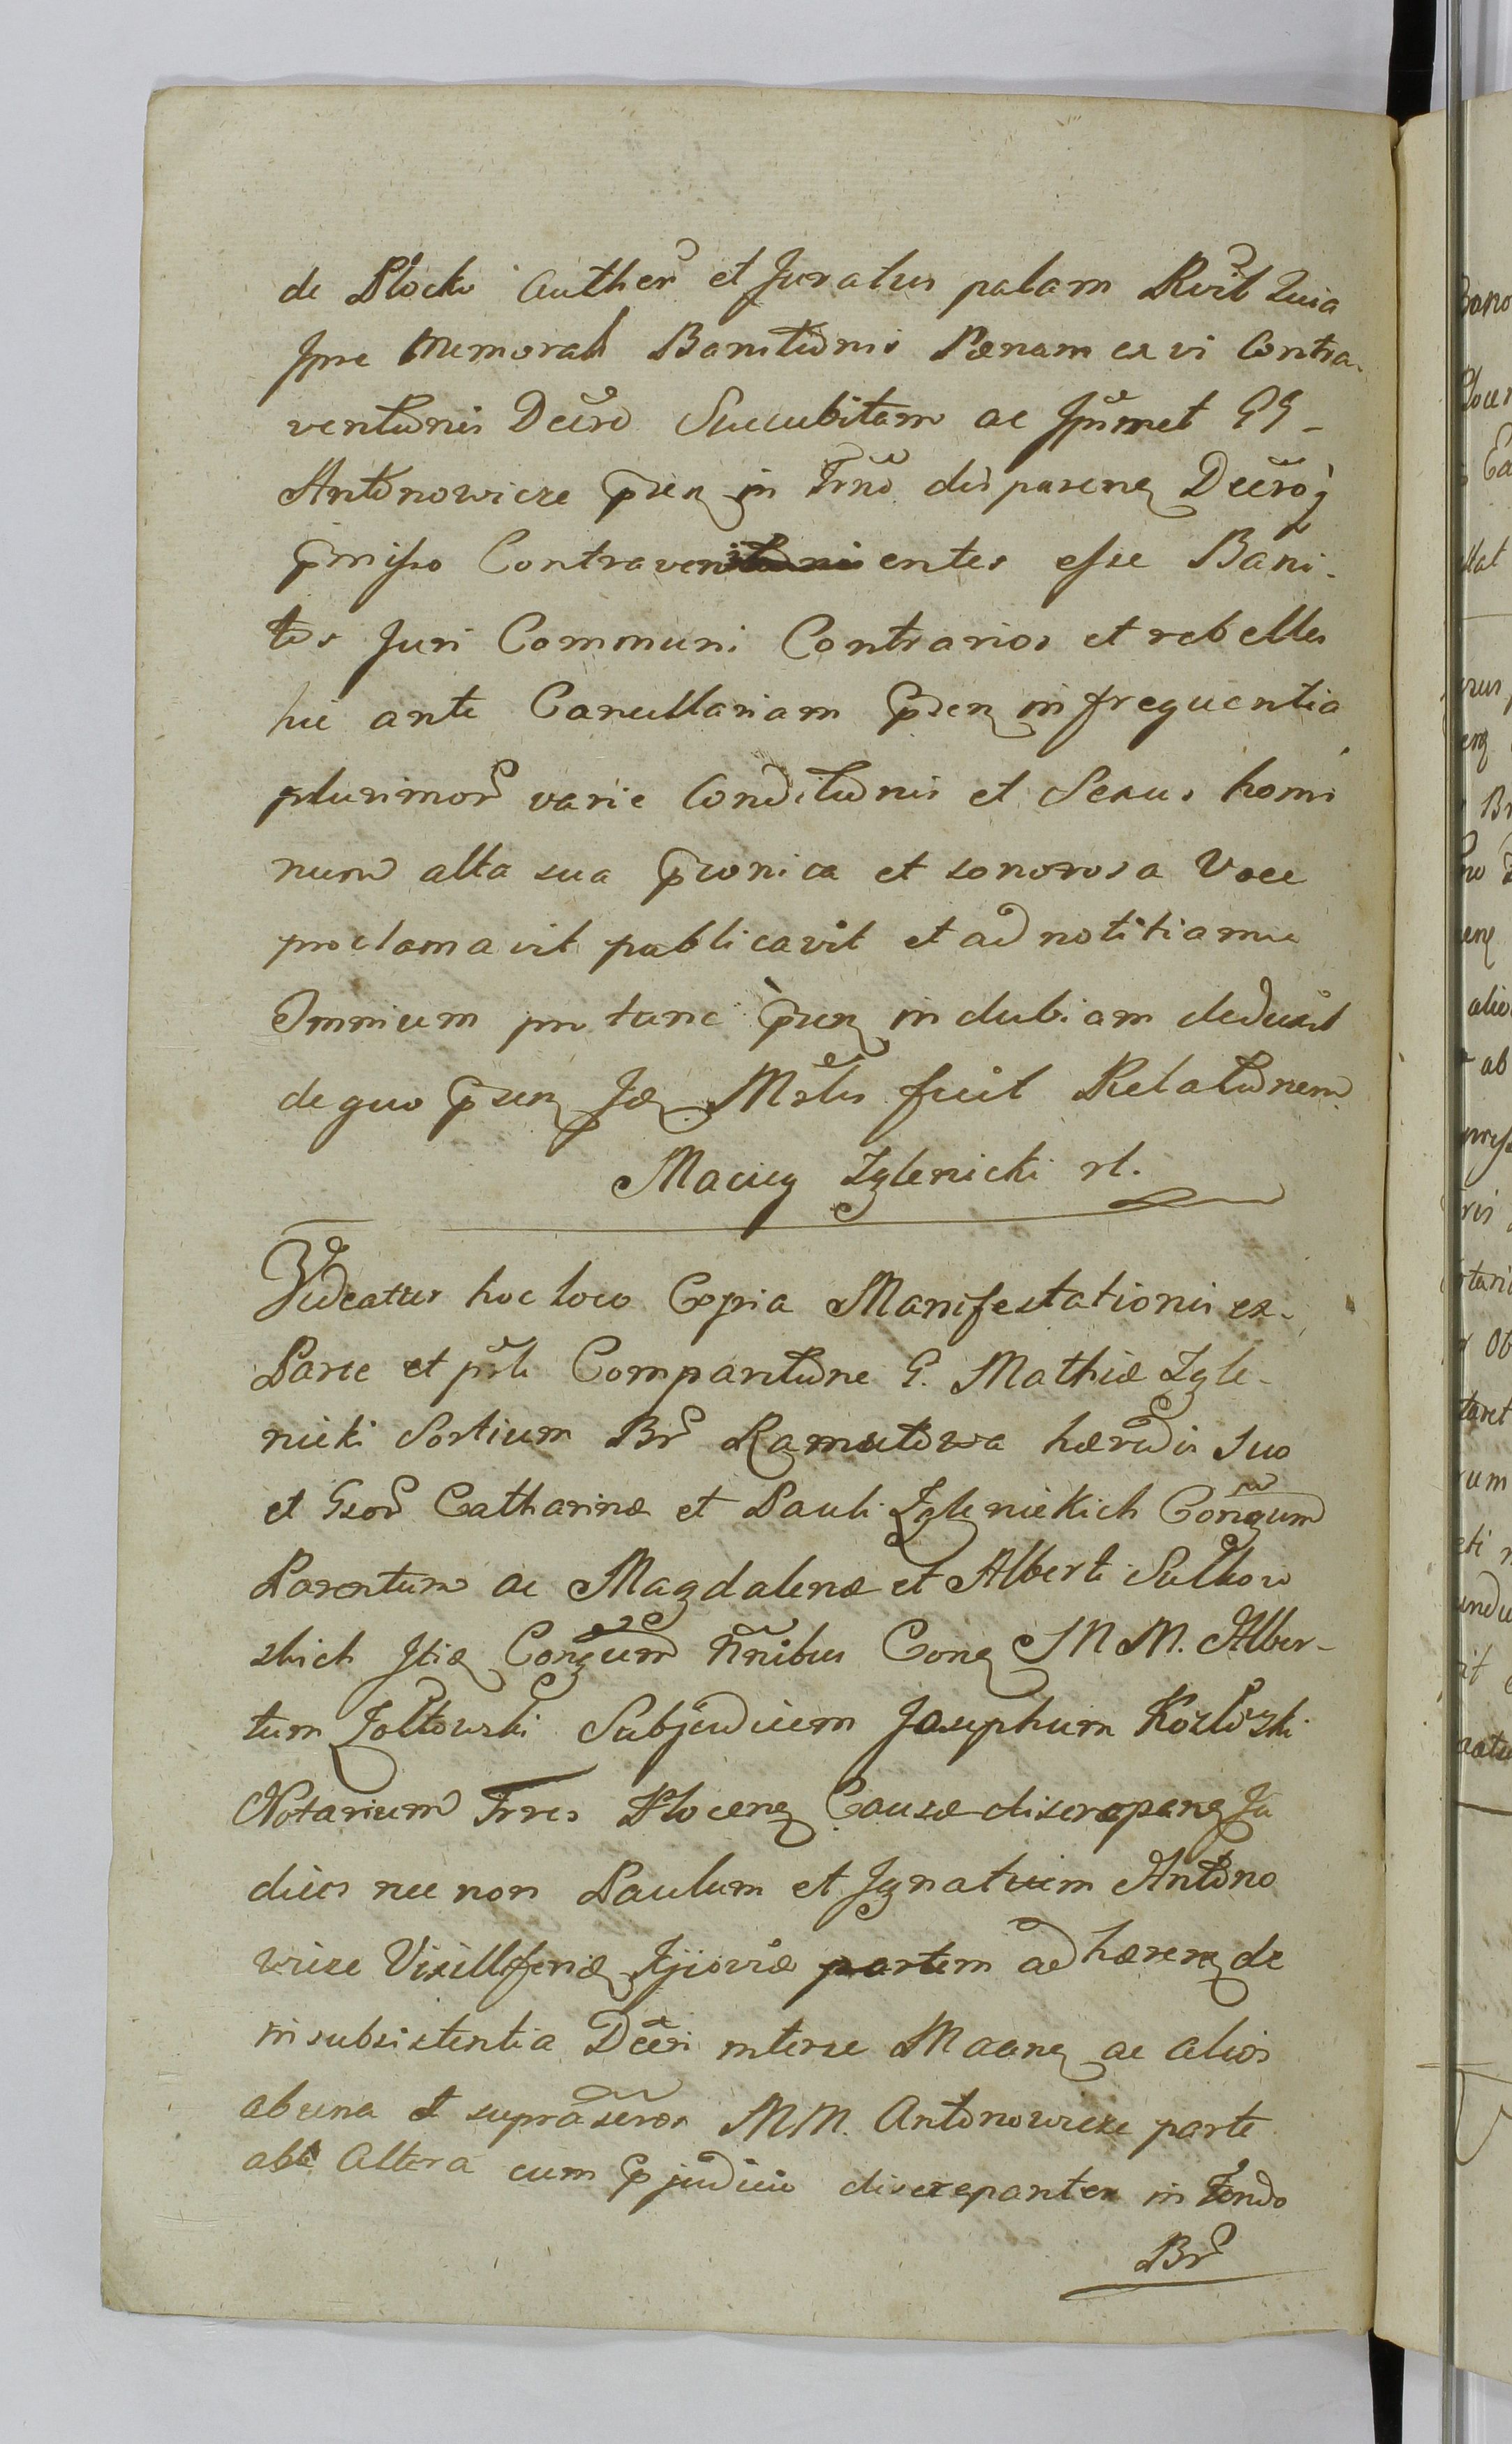 de Płocko Auther et Juratus palam Rvit Quia
Ipse Memorati Banitionis Pœnam ex vi Contra-
ventionis Decro Succubitam ac Ipsmet GG
Antonowicze psen in Trno disparen Decroq
pmisso Contravenientes esse Bani-
tos Juri Communi Contrarios et rebelles
hic ante Cancellariam psen in frequentia
plurimor varie Conditionis et Sexus homi
num alta sua pconica et sonorosa Voce
proclamavit publicavit et ad notitiam
Omnium pro tunc psen indubiam deduxit
de quo psen Mrlis fecit Relationem
Maciey Zglenicki rl.
Videatur hoc loco Copia Manifestationis ex
Parte et prli Comparitione G. Mathiæ Zgle-
nicki Sortium Br Ramutowa hæredis suo
et Gsor Catharinæ et Pauli Zglenickich Congum
Parentum ac Magdalenæ et Alberti Sulkow
skich Itid Congum nnibus Cong MM. Alber-
tum Zołtowski Subjudicem Josephum Kozłoski
Notarium Trres Plocen Causæ discrepan Ju
dices nec non Paulum et Ignatium Antono
wicze Vixilliferid Kijoviæ partem adhæren de
insubsistentia Decri interse Maanen ac alios
ab una et supraseros MM. Antonowicze parte
ab Altera cum pjudicio discrepanten in fondo
Br